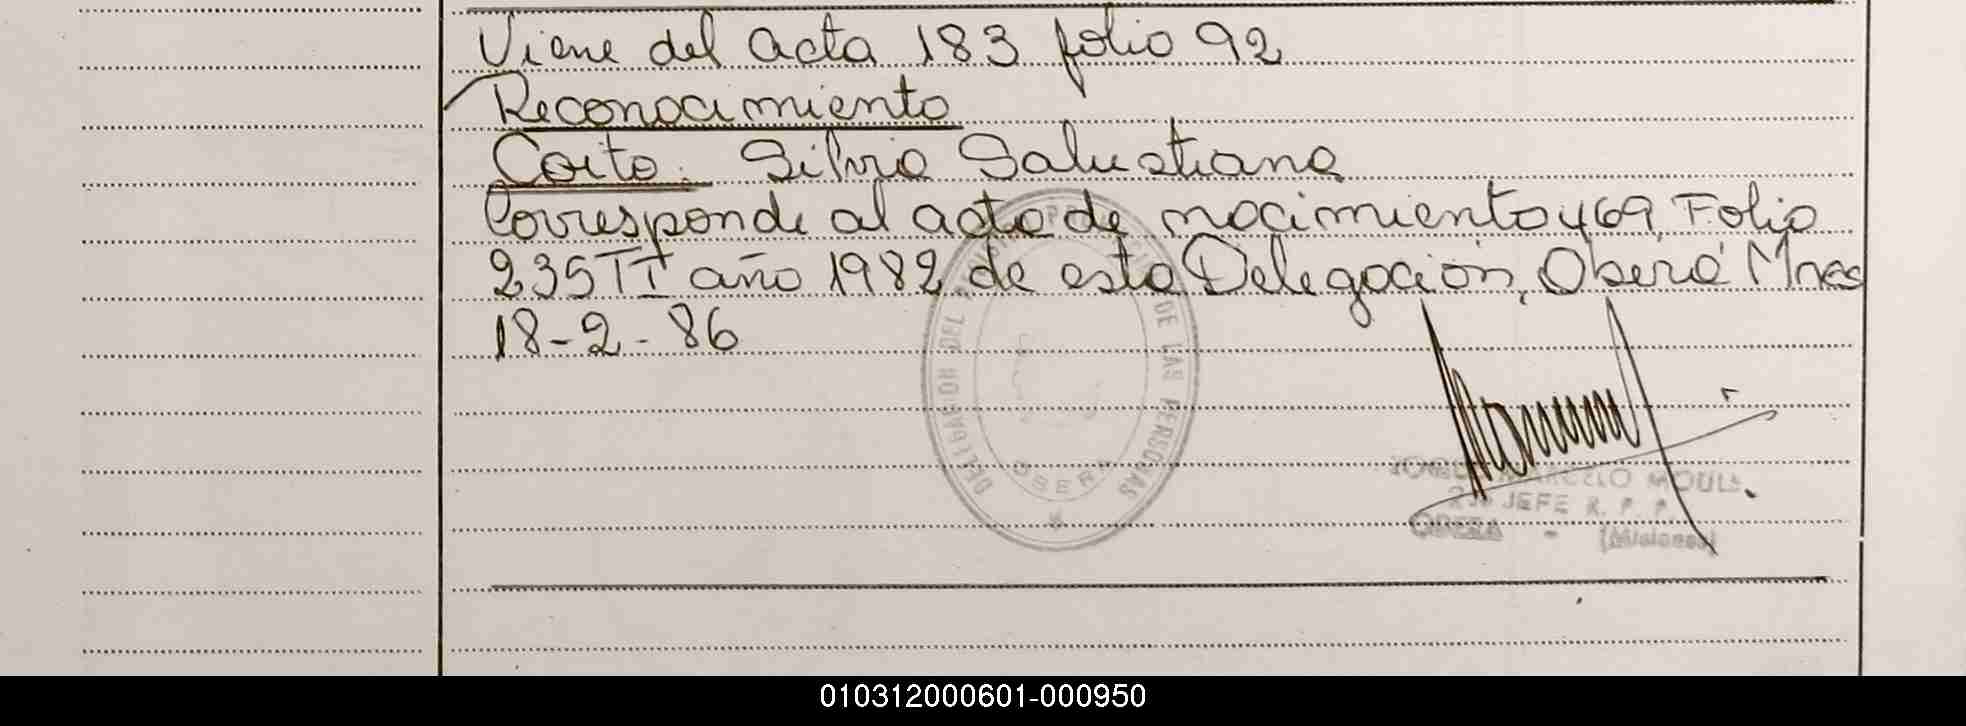 Viene del acta 183 folio 92
Reconocimiento
Coito. Silvio Salustiano
Corresponde al acta de nacimiento 469, Folio
235 TI año 1982 de esta Delegación, Oberá Mnes
18-2-86
DELEGACION DEL REGISTRO PROVINCIAL DE LAS PERSONAS
OBERA
MARCELO
2do JEFE R. P. P.
OBERA - (Misiones)
010312000601-000950